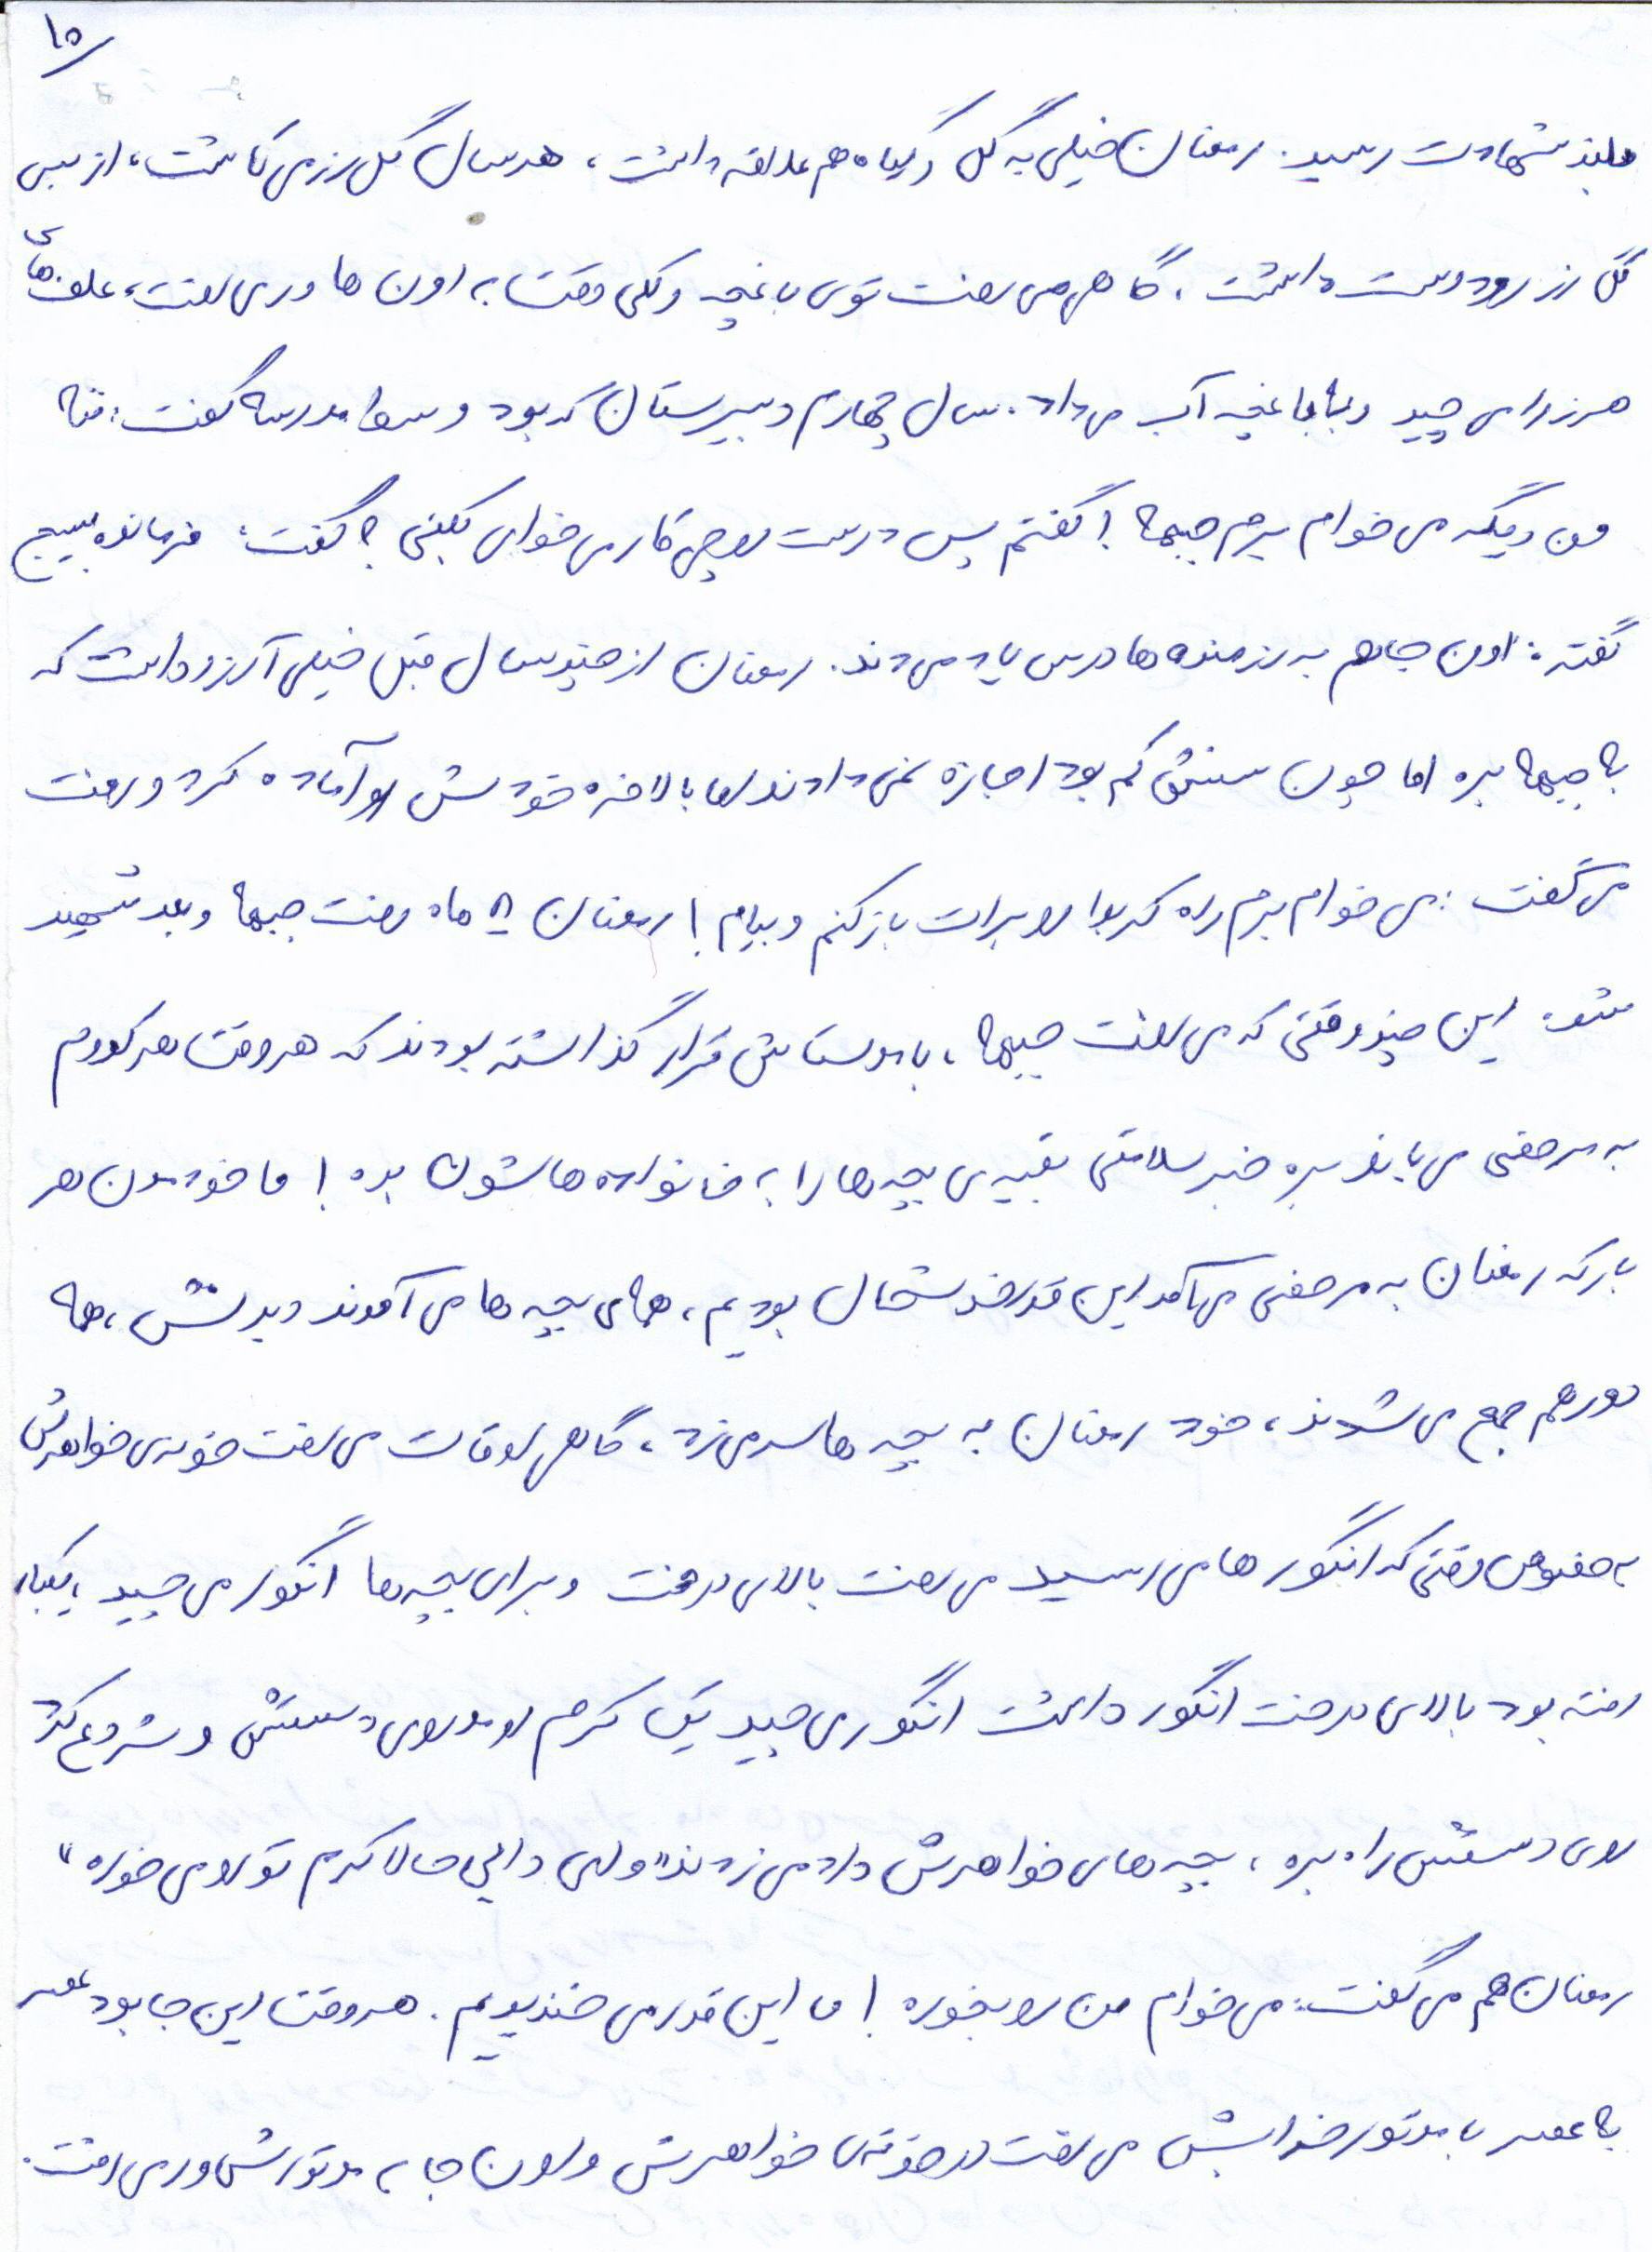 ۱۵
بلند شهادت رسید. رمضان خیلی به گل و گیاه هم علاقه داشت، هر سال گل رز می کاشت، از بس
گل رز رو دوست داشت. گاهی می رفت توی باغچه و کلی وقت به اون ها ور می رفت، علف های
هرز را می چید و به باغچه آب می داد. سال چهارم دبیرستان که بود وسط مدرسه گفت: ننه
من دیگه می خوام برم جبهه! گفتم پس درست رو چی کار می خوای بکنی؟ گفت: فرمانده بسیج
گفته: اون جا هم به رزمنده ها درس یاد می دند. رمضان از چند سال قبل خیلی آرزو داشت که
به جبهه بره اما چون سنش کم بود اجازه نمی دادند اما بالاخره خودش رو آماده کرد و رفت
می گفت: می خوام برم راه کربلا رو برات باز کنم و بیام! رمضان ۱۸ ماه رفت جبهه و بعد شهید
شد. این چند وقتی که می رفت جبهه، با دوستاش قرار گذاشته بودند که هر وقت هر کدوم
به مرخصی می یاند بره خبر سلامتی بقیه ی بچه ها را به خانواده هاشون بده! ما خودمون هر
بار که رمضان به مرخصی می آمد این قدر خوشحال بودیم، همه ی بچه ها می آمدند دیدنش، همه
دور هم جمع می شدند، خود رمضان به بچه ها سر می زد، گاهی اوقات می رفت خونه ی خواهرش
به خصوص وقتی که انگور ها می رسید می رفت بالای درخت و برای بچه ها انگور می چید، یکبار
رفته بود بالای درخت انگور داشت انگور می چید یک کرم اومد روی دستش و شروع کرد
روی دستش راه بره، بچه های خواهرش داد می زدند "وای دایی حالا کرم تو رو می خوره"
رمضان هم می گفت: می خوام من رو بخوره! ما این قدر می خندیدیم. هر وقت این جا بود عصر
به عصر با موتور خرابش می رفت در خونه ی خواهرش و اون جا به موتورش ور می رفت.